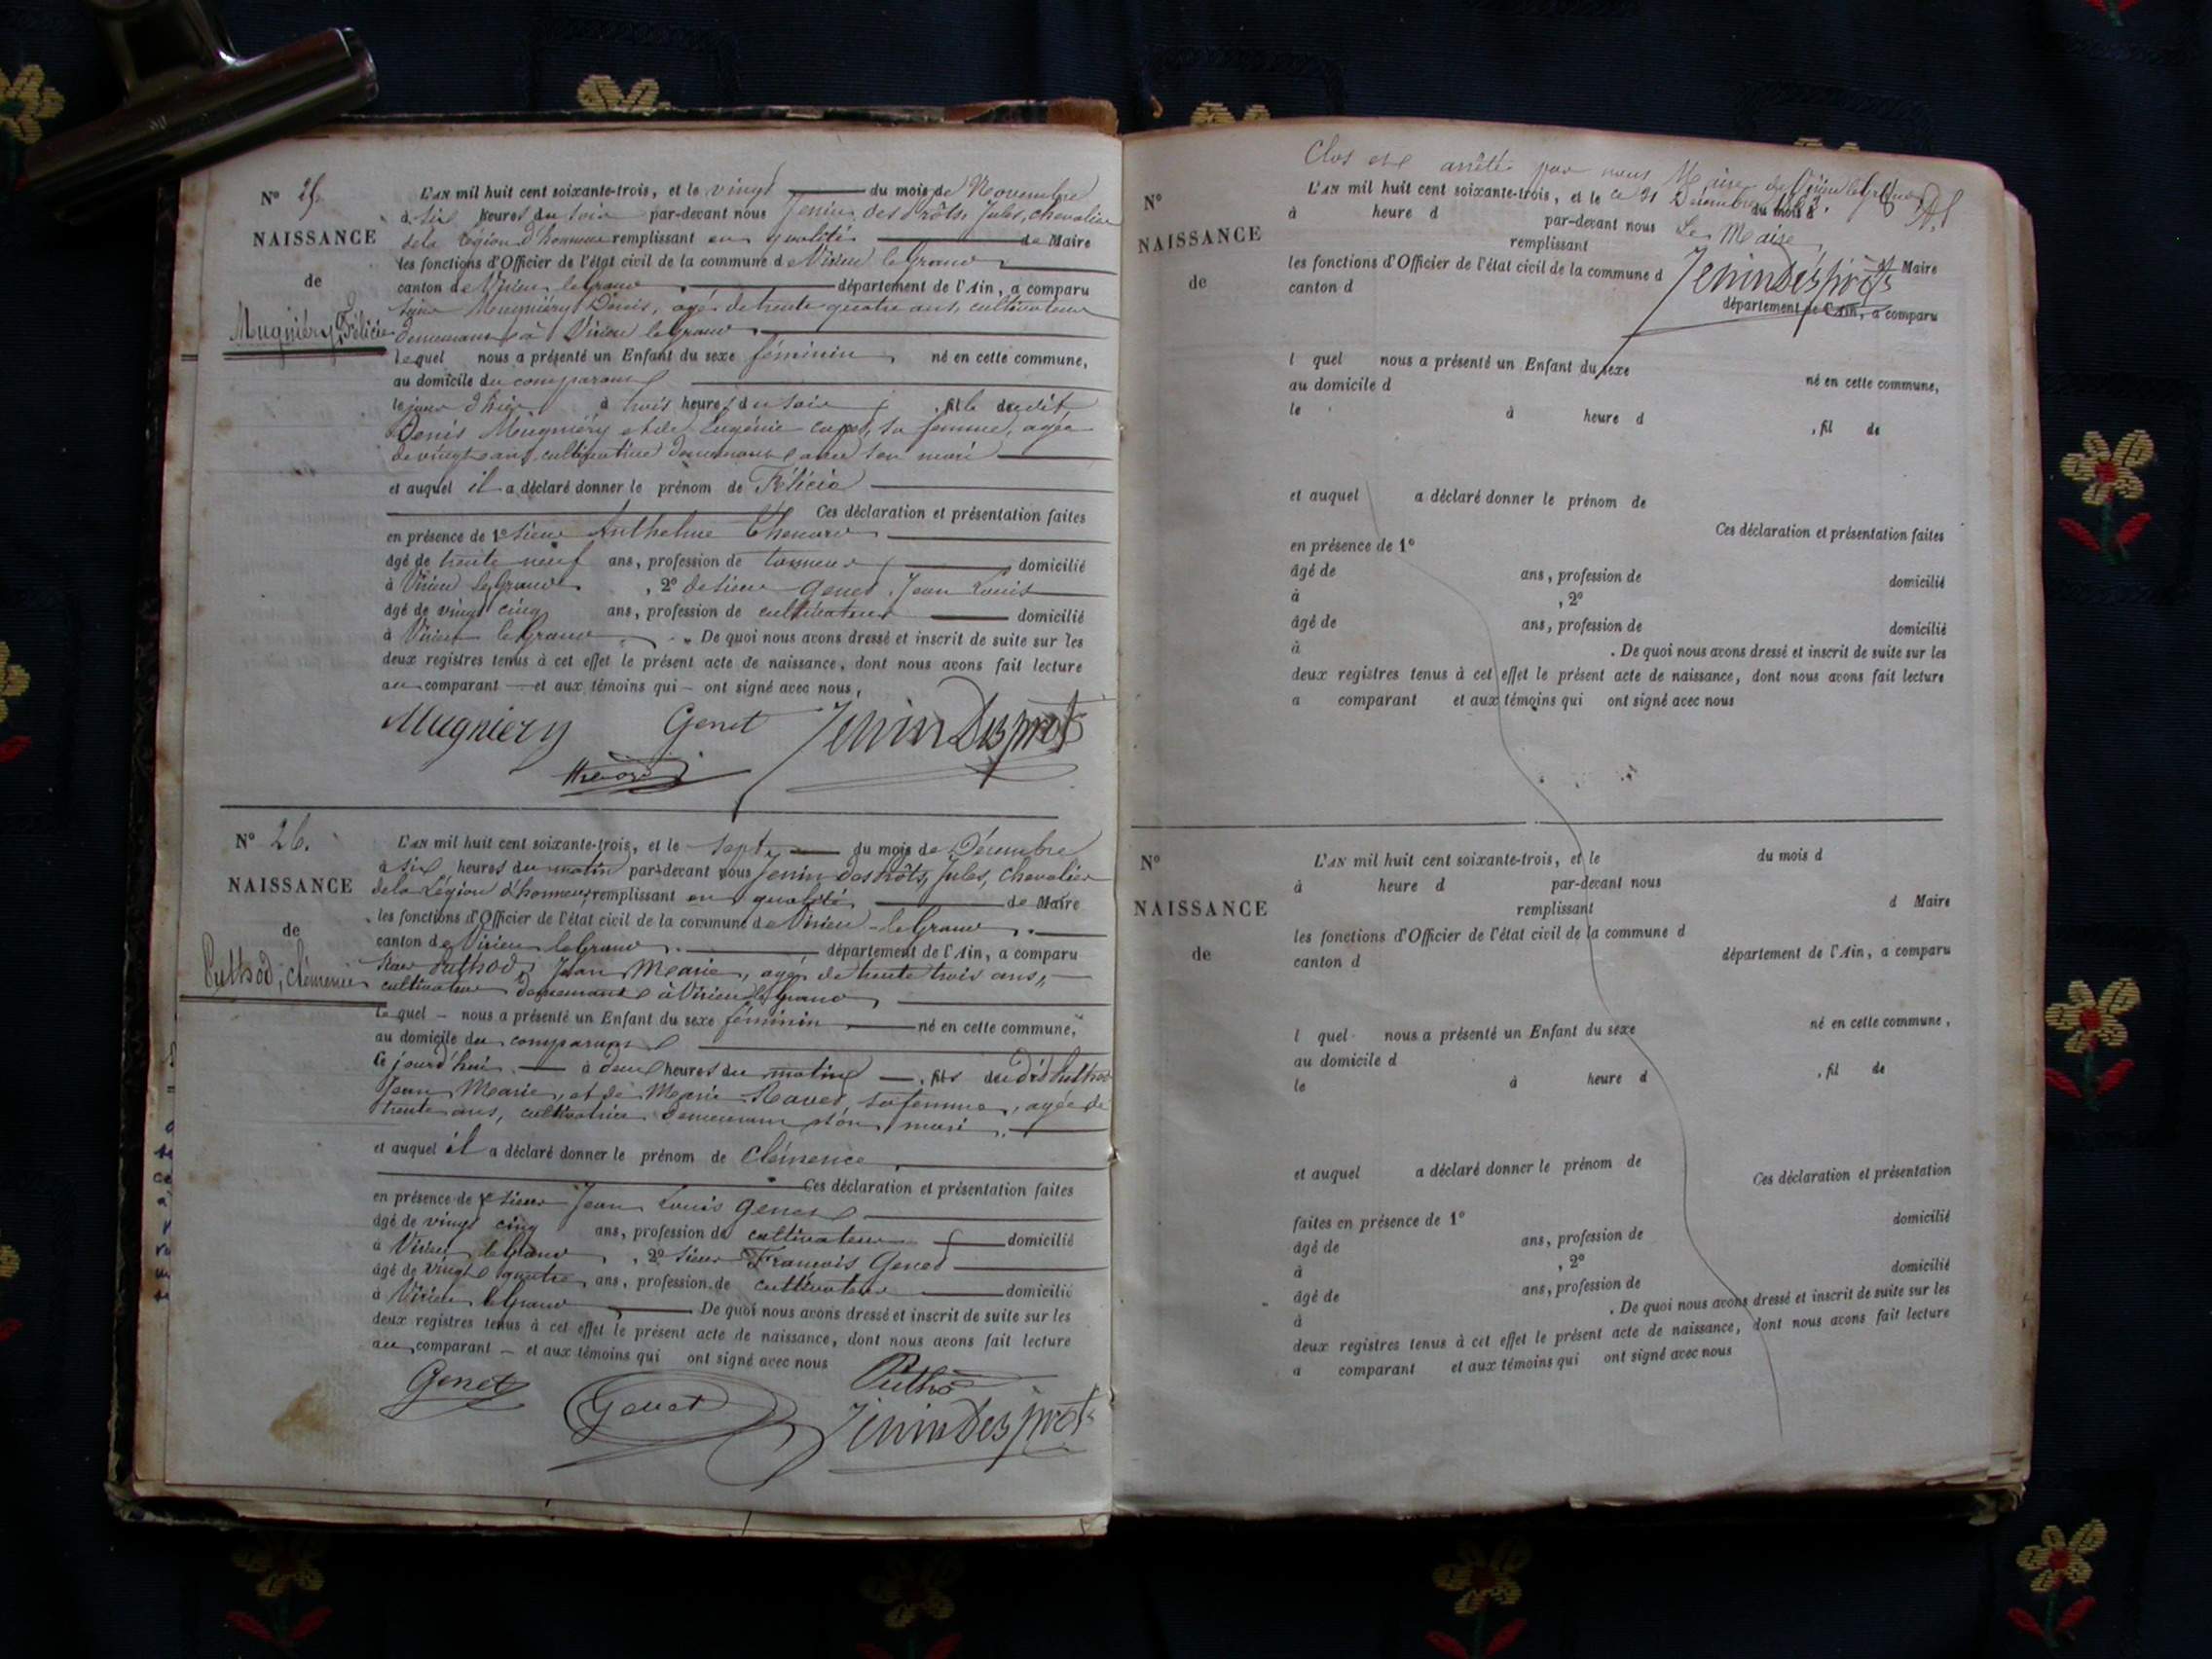 N° 25.
NAISSANCE
de
Mugniéry, Félicie
L'AN mil huit cent soixante-trois, et le vingt du mois de Novembre
à six heures du soir par-devant nous Jenin des prôts, Jules, chevalier
de la Légion d'honneur remplissant en qualité de Maire
les fonctions d'Officier de l'état civil de la commune de Virieu le Grand
canton de Virieu le Grand département de l'Ain, a comparu
sieur Mugniéry Denis, agé de trente quatre ans, cultivateur
demeurant à Virieu le Grand
lequel nous a présenté un Enfant du sexe féminin, né en cette commune,
au domicile du comparant
le jour d'hier à trois heures du soir, fille dudit
Denis Mugniéry et de Eugénie sa femme, agée
de vingt ans, cultivatrice demeurant avec son mari
et auquel il a déclaré donner le prénom de Félicie
Ces déclaration et présentation faites
en présence de 1° sieur Anthelme
âgé de trente neuf ans, profession de domicilié
à Virieu le Grand, 2° de sieur Genet, Jean Louis
âgé de vingt cinq ans, profession de cultivateur domicilié
à Virieu le Grand. De quoi nous avons dressé et inscrit de suite sur les
deux registres tenus à cet effet le présent acte de naissance, dont nous avons fait lecture
au comparant et aux témoins qui ont signé avec nous,
Mugniery Genet Jenin Desprots
N° 26.
NAISSANCE
de
Puthod, Clémence
L'AN mil huit cent soixante-trois, et le sept du mois de Décembre
à six heures du matin par-devant nous Jenin des prôts, Jules, Chevalier
de la Légion d'honneur, remplissant en qualité de Maire
les fonctions d'Officier de l'état civil de la commune de Virieu-le-Grand
canton de Virieu le Grand département de l'Ain, a comparu
sieur Puthod, Jean Marie, agé de trente trois ans,
cultivateur demeurant à Virieu le Grand
lequel nous a présenté un Enfant du sexe féminin né en cette commune,
au domicile du comparant
Ce jourd'hui à deux heures du matin, fils dudit Puthod
Jean Marie, et de Marie sa femme, agée de
trente ans, cultivatrice demeurant son mari,
et auquel il a déclaré donner le prénom de Clémence
Ces déclaration et présentation faites
en présence de 1° sieur Jean Louis Genet
âgé de vingt cinq ans, profession de cultivateur domicilié
à Virieu le Grand, 2° sieur François Genet
âgé de vingt quatre ans, profession de cultivateur domicilié
à Virieu le Grand De quoi nous avons dressé et inscrit de suite sur les
deux registres tenus à cet effet le présent acte de naissance, dont nous avons fait lecture
au comparant et aux témoins qui ont signé avec nous
Genet Genet Puthod
Jenin Desprots
Clos et arrêté par nous Maire de Virieu le Grand
N°
NAISSANCE
de
L'AN mil huit cent soixante-trois, et le ce 31 Décembre 1863. du mois d
à heure d par-devant nous Le Maire,
remplissant d Maire
les fonctions d'Officier de l'état civil de la commune d Jenin Desprots
canton d département de l'Ain, a comparu
l quel nous a présenté un Enfant du sexe né en cette commune,
au domicile d
le à heure d , fil de
et auquel a déclaré donner le prénom de
Ces déclaration et présentation faites
en présence de 1°
âgé de ans, profession de domicilié
à , 2°
âgé de ans, profession de domicilié
à . De quoi nous avons dressé et inscrit de suite sur les
deux registres tenus à cet effet le présent acte de naissance, dont nous avons fait lecture
a comparant et aux témoins qui ont signé avec nous
N°
NAISSANCE
de
L'AN mil huit cent soixante-trois, et le du mois d
à heure d par-devant nous
remplissant d Maire
les fonctions d'Officier de l'état civil de la commune d
canton d département de l'Ain, a comparu
l quel nous a présenté un Enfant du sexe né en cette commune,
au domicile d
le à heure d , fil de
et auquel a déclaré donner le prénom de
Ces déclaration et présentation
faites en présence de 1° domicilié
âgé de ans, profession de
à , 2° domicilié
âgé de ans, profession de
à . De quoi nous avons dressé et inscrit de suite sur les
deux registres tenus à cet effet le présent acte de naissance, dont nous avons fait lecture
a comparant et aux témoins qui ont signé avec nous